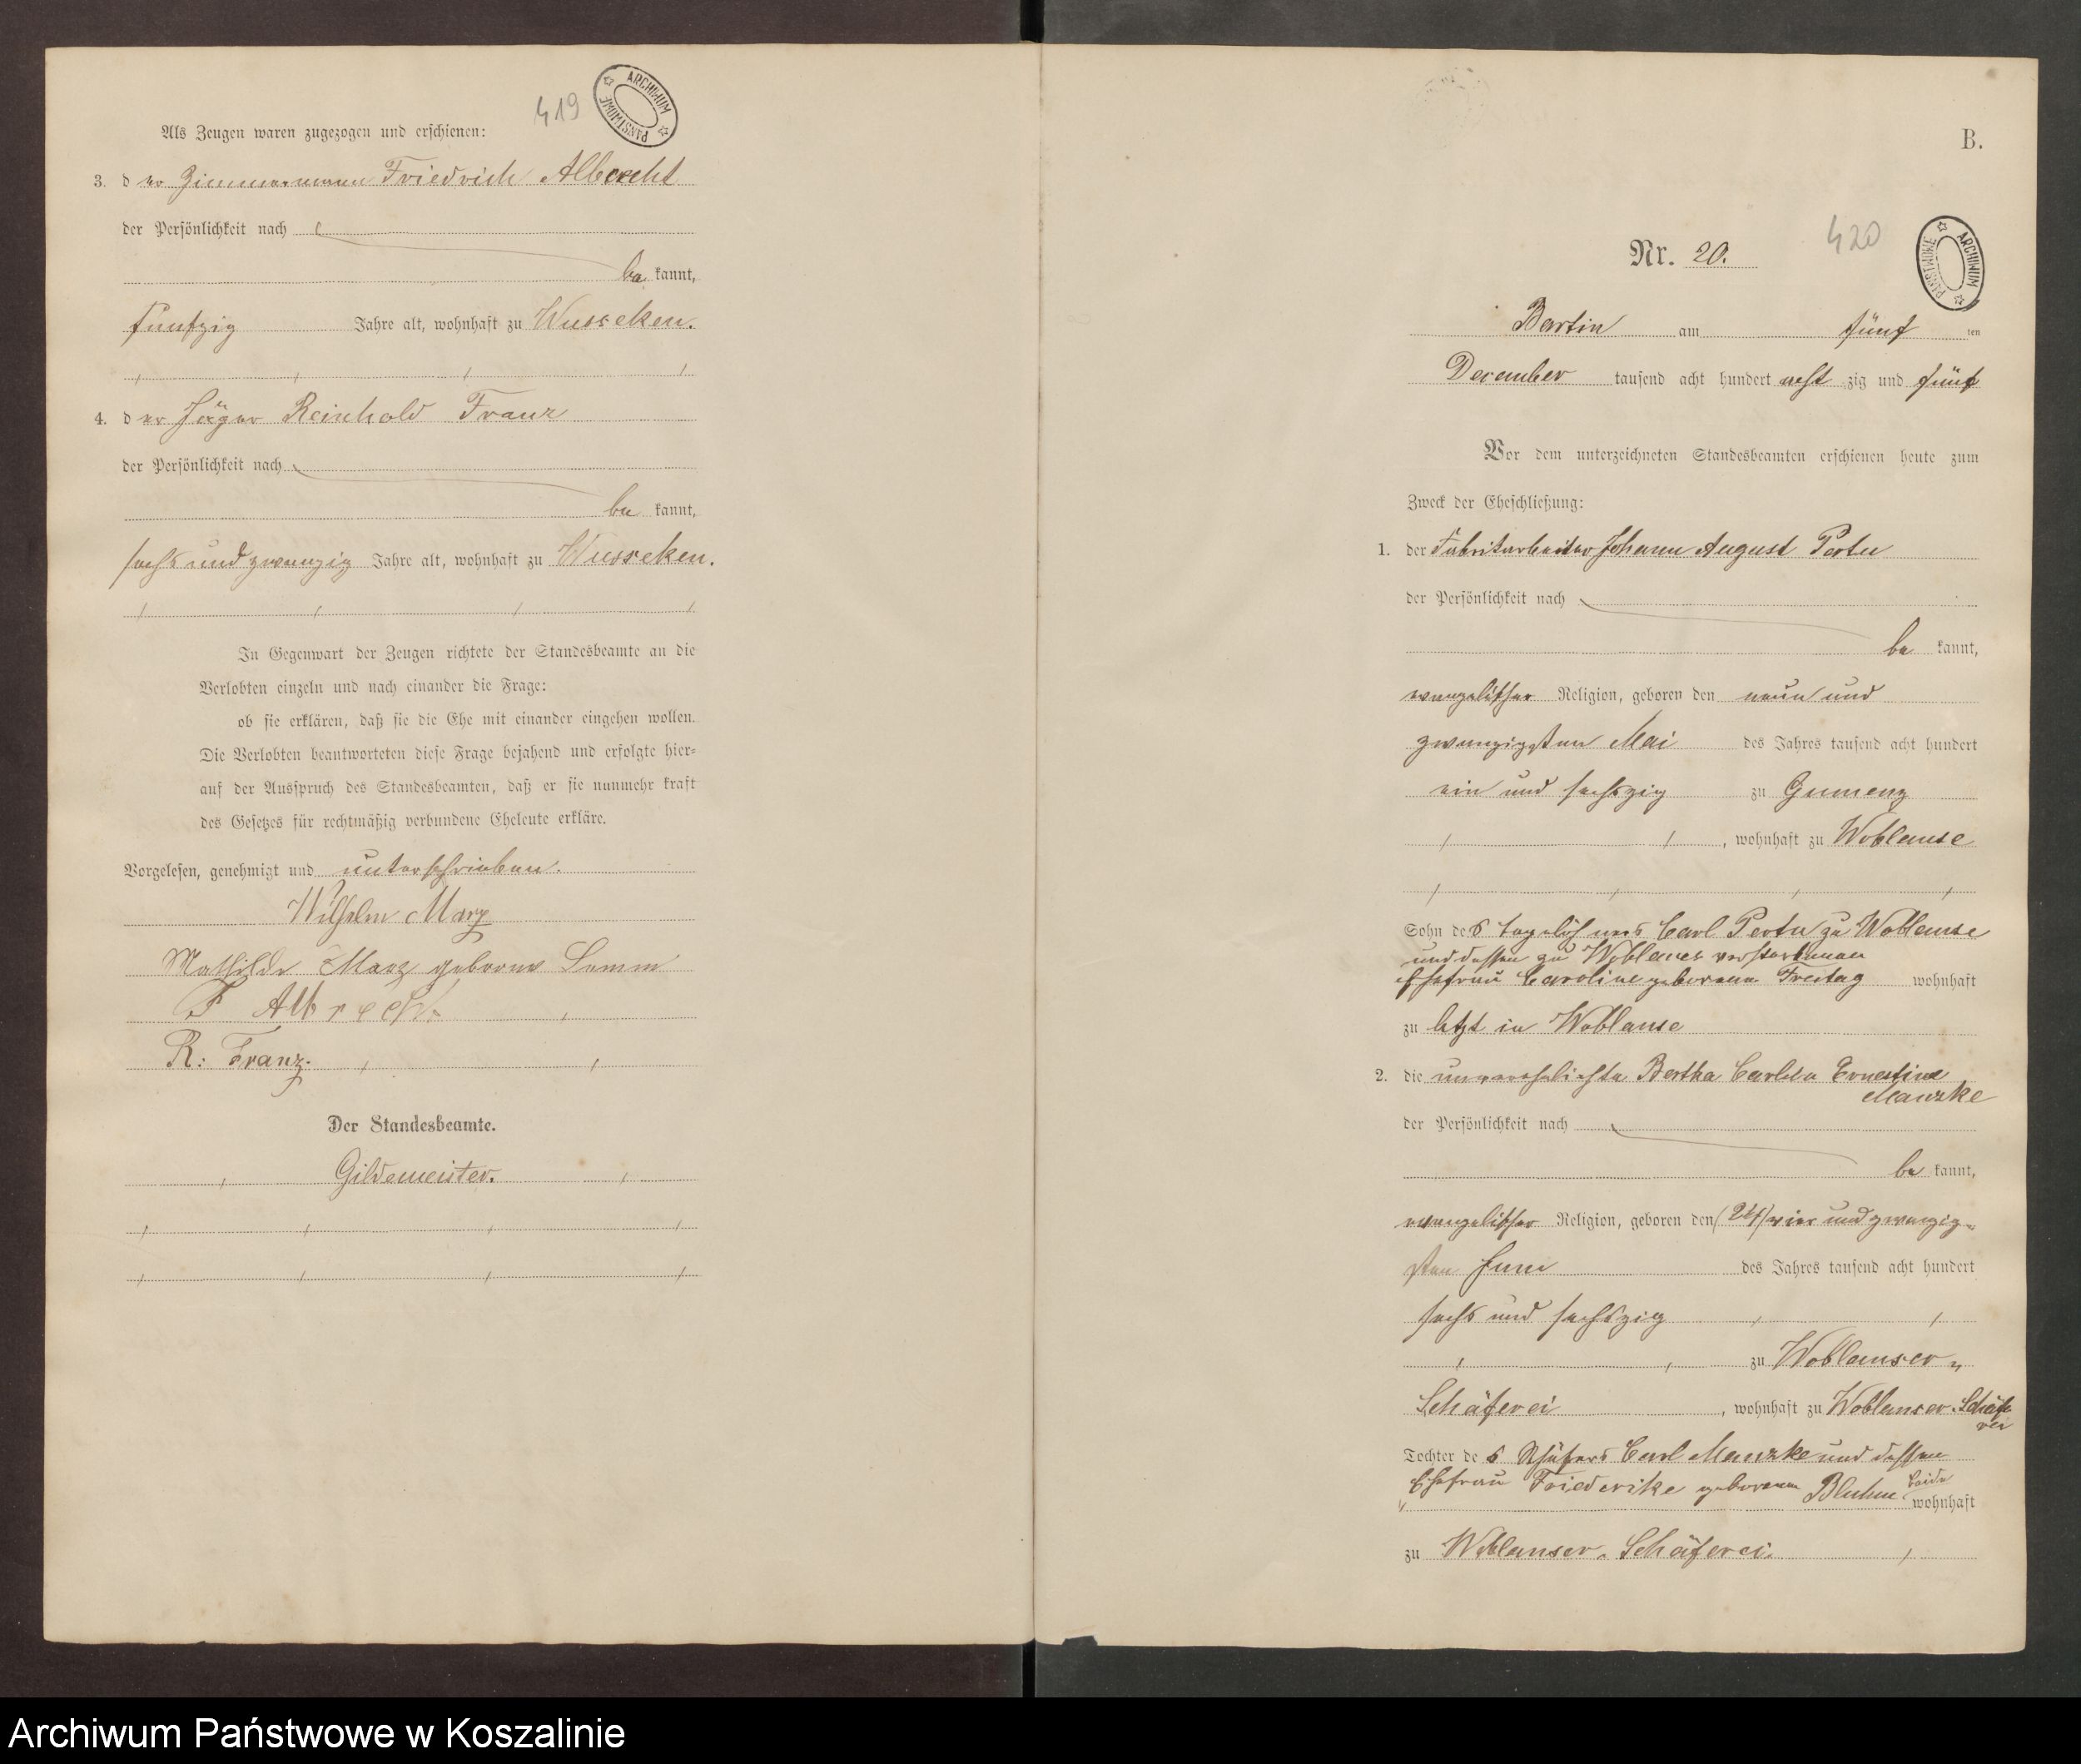 419
ARCHIWUM PAŃSTWOWE
Als Zeugen waren zugezogen und erschienen:
3. der Zimmermann Friedrich Albrecht
der Persönlichkeit nach
be kannt,
fünfzig Jahre alt, wohnhaft zu Wusseken.
4. der Jäger Reinhold Franz
der Persönlichkeit nach
be kannt,
sechs und zwanzig Jahre alt, wohnhaft zu Wusseken.
In Gegenwart der Zeugen richtete der Standesbeamte an die
Verlobten einzeln und nach einander die Frage:
ob sie erklären, daß sie die Ehe mit einander eingehen wollen.
Die Verlobten beantworteten diese Frage bejahend und erfolgte hier-
auf der Ausspruch des Standesbeamten, daß er sie nunmehr kraft
des Gesetzes für rechtmäßig verbundene Eheleute erkläre.
Vorgelesen, genehmigt und unterschrieben.
Wilhelm Marz
Mathilde Marz geborne Lemm
F Albrecht.
R: Franz.
Der Standesbeamte.
Gildemeister.
B.
420
ARCHIWUM PAŃSTWOWE
Nr. 20.
Bartin am fünf ten
December tausend acht hundert acht zig und fünf
Vor dem unterzeichneten Standesbeamten erschienen heute zum
Zweck der Eheschließung:
1. der Fabrikarbeiter Johann August
der Persönlichkeit nach
be kannt,
evangelischer Religion, geboren den neun und
zwanzigsten Mai des Jahres tausend acht hundert
ein und sechszig zu Gumenz
, wohnhaft zu Woblanse
Sohn des Carl zu Woblanse
und dessen zu Woblanse verstorbenen
Ehefrau Caroline geborenen Freitag wohnhaft
zu letzt in Woblanse
2. die unverehelichte Bertha Ernestine
Manzke
der Persönlichkeit nach
be kannt,
evangelischer Religion, geboren den (24) vier und zwanzig-
sten Juni des Jahres tausend acht hundert
sechs und sechszig
zu Woblanser-
Schäferei , wohnhaft zu Woblanser Schäfe
rei
Tochter des Schäfers Carl Manzke und dessen
Ehefrau Friederike geborenen Bluhm beide
wohnhaft
zu Woblanser-Schäferei.
Archiwum Państwowe w Koszalinie